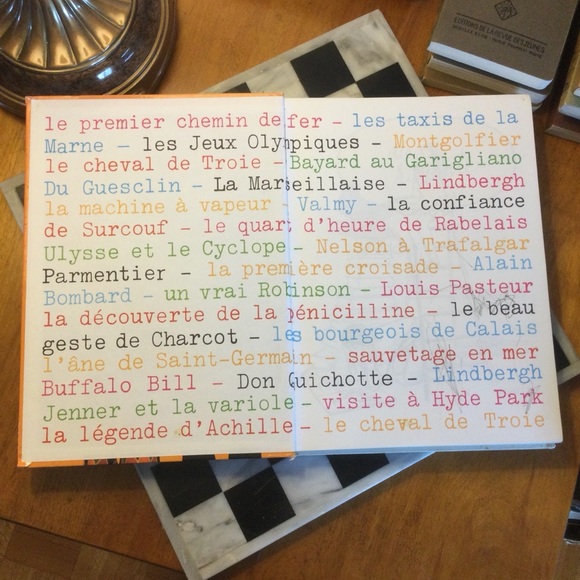 EDITIONS DE LA REVUE DES JEUNES
le premier chemin de fer – les taxis de la
Marne – les Jeux Olympiques – Montgolfier
le cheval de Troie – Bayard au Garigliano
Du Guesclin – La Marseillaise – Lindbergh
la machine à vapeur – Valmy – la confiance
de Surcouf – le quart d'heure de Rabelais
Ulysse et le Cyclope – Nelson à Trafalgar
Parmentier – la première croisade – Alain
Bombard – un vrai Robinson – Louis Pasteur
la découverte de la pénicilline – le beau
geste de Charcot – les bourgeois de Calais
l'âne de Saint-Germain – sauvetage en mer
Buffalo Bill – Don Quichotte – Lindbergh
Jenner et la variole – visite à Hyde Park
la légende d'Achille – le cheval de Troie